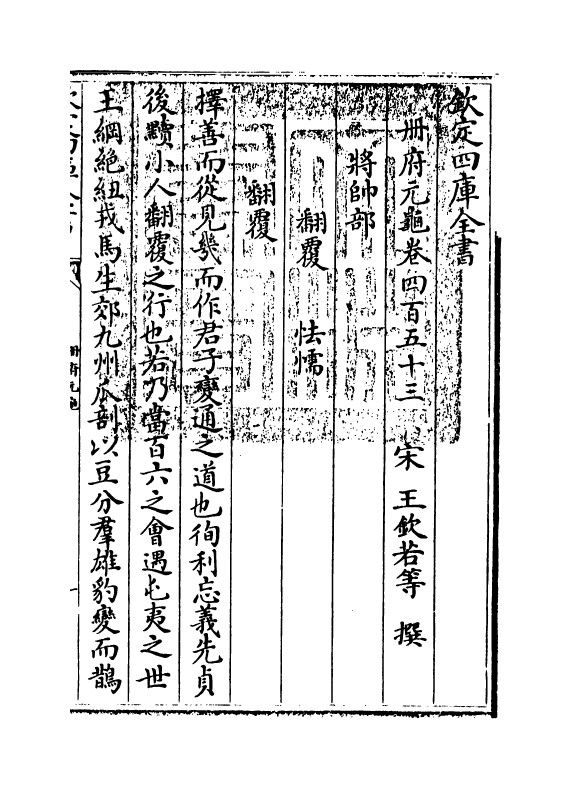 欽定四庫全書
冊府元龜卷四百五十三　宋　王欽若等　撰
將帥部
翻覆　怯懦
翻覆
擇善而從見幾而作君子變通之道也徇利忘義先貞
後黷小人翻覆之行也若乃當百六之會遇屯夷之世
王綱絶紐戎馬生郊九州瓜剖以豆分羣雄豹變而鵲
冊府元龜
一